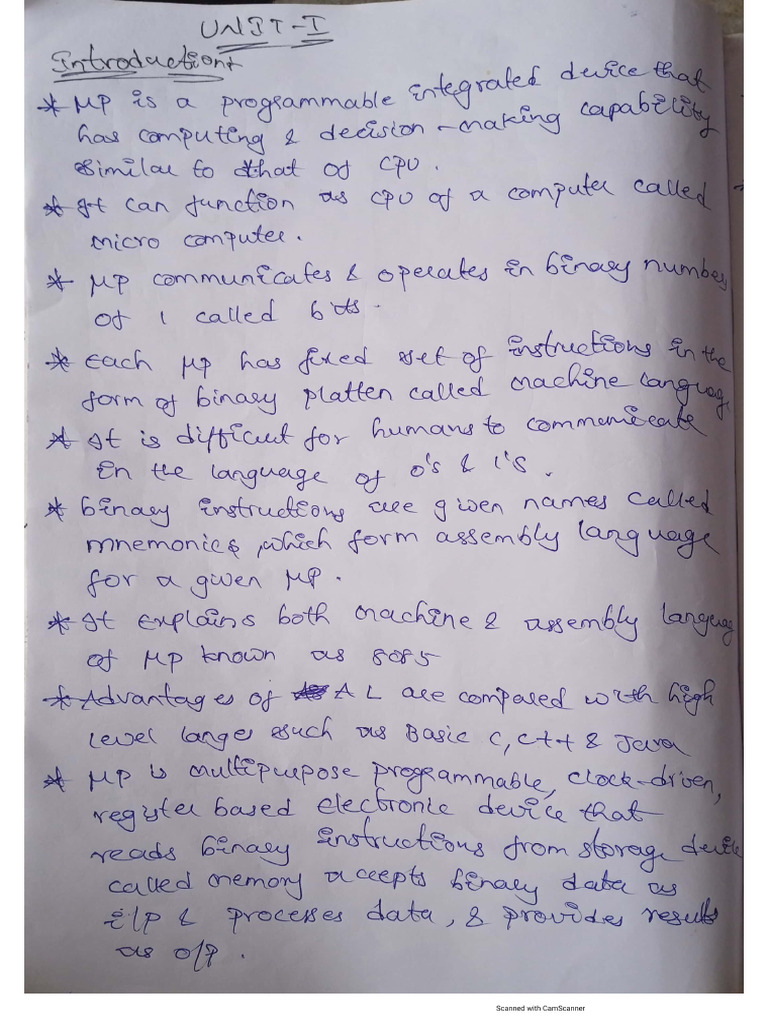 UNIT-I
Introduction:
* μp is a programmable integrated device that
has computing & decision-making capability
similar to that of CPU.
* It can function as CPU of a computer called
micro computer.
* μp communicates & operates in binary numbers
of 1 called bits.
* Each μp has fixed set of instructions in the
form of binary platten called machine language
* It is difficult for humans to commenicate
in the language of 0's & 1's.
* Binary instructions are given names called
mnemonics, which form assembly language
for a given μp.
* It explains both machine & assembly languag
of μp known as 8085
* Advantages of A L are compared with high
level langes such as Basic C, C++ & Java
* μp is multipurpose programmable, clock-driven,
register based electronic device that
reads binary instructions from storage device
called memory accepts binary data as
i/p & processes data, & provides results
as o/p.
Scanned with CamScanner